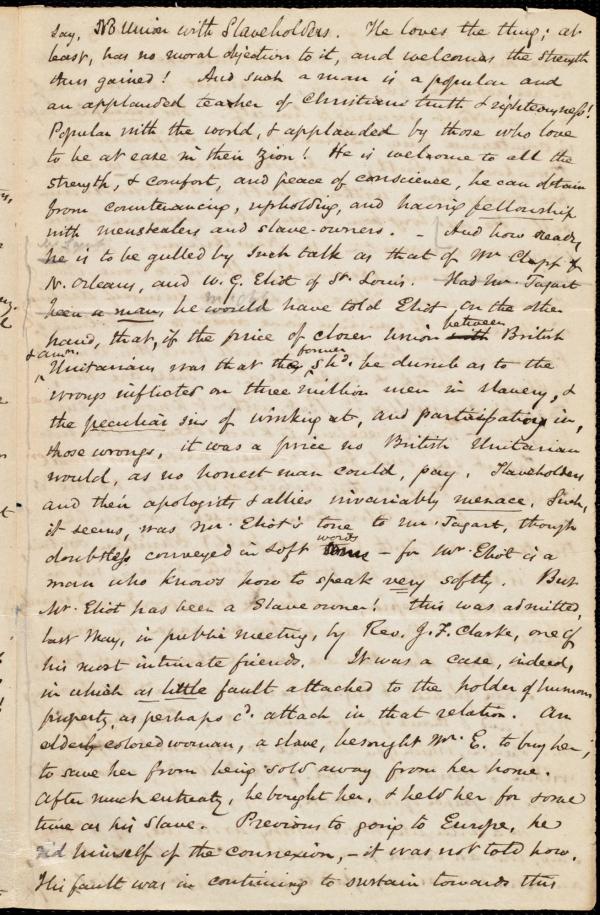 say, No Union with Slaveholders. He loves the thing; at
least, has no moral objection to it, and welcomes the strength
thus gained! And such a man is a popular and
an applauded teacher of Christian truth & righteousness!
Popular with the world, & applauded by those who love
to be at ease in their Zion! He is welcome to all the
strength, & comfort, and peace of conscience, he can obtain
from countenancing, upholding, and having fellowship
with menstealers and slave-owners. – And how ready
he is to be gulled by such talk as that of Mr Clapp of
N. Orleans, and W. G. Eliot of St. Louis. Had Mr. Tagart
been a man, he would have told Eliot, on the other
hand, that, if the price of closer union between British
& Amn. Unitarians was that the former shd. be dumb as to the
wrongs inflicted on three million men in slavery, &
the peculiar sins of winking at, and participating in,
those wrongs, it was a price no British Unitarian
would, as no honest man could, pay. Slaveholders
and their apologists & allies invariably menace. Such,
it seems, was Mr. Eliot's tone to Mr. Tagart, though
doubtless conveyed in soft words – for Mr. Eliot is a
man who knows how to speak very softly. But
Mr. Eliot has been a Slave owner! This was admitted,
last May, in public meeting, by Rev. J. F. Clarke, one of
his most intimate friends. It was a case, indeed,
in which as little fault attached to the holder of human
property, as perhaps cd. attach in that relation. An
elderly colored woman, a slave, besought Mr. E. to buy her,
to save her from being sold away from her home.
After much entreaty, he bought her, & held her for some
time as his slave. Previous to going to Europe, he
rid himself of the connexion, – it was not told how.
His fault was in continuing to sustain towards this